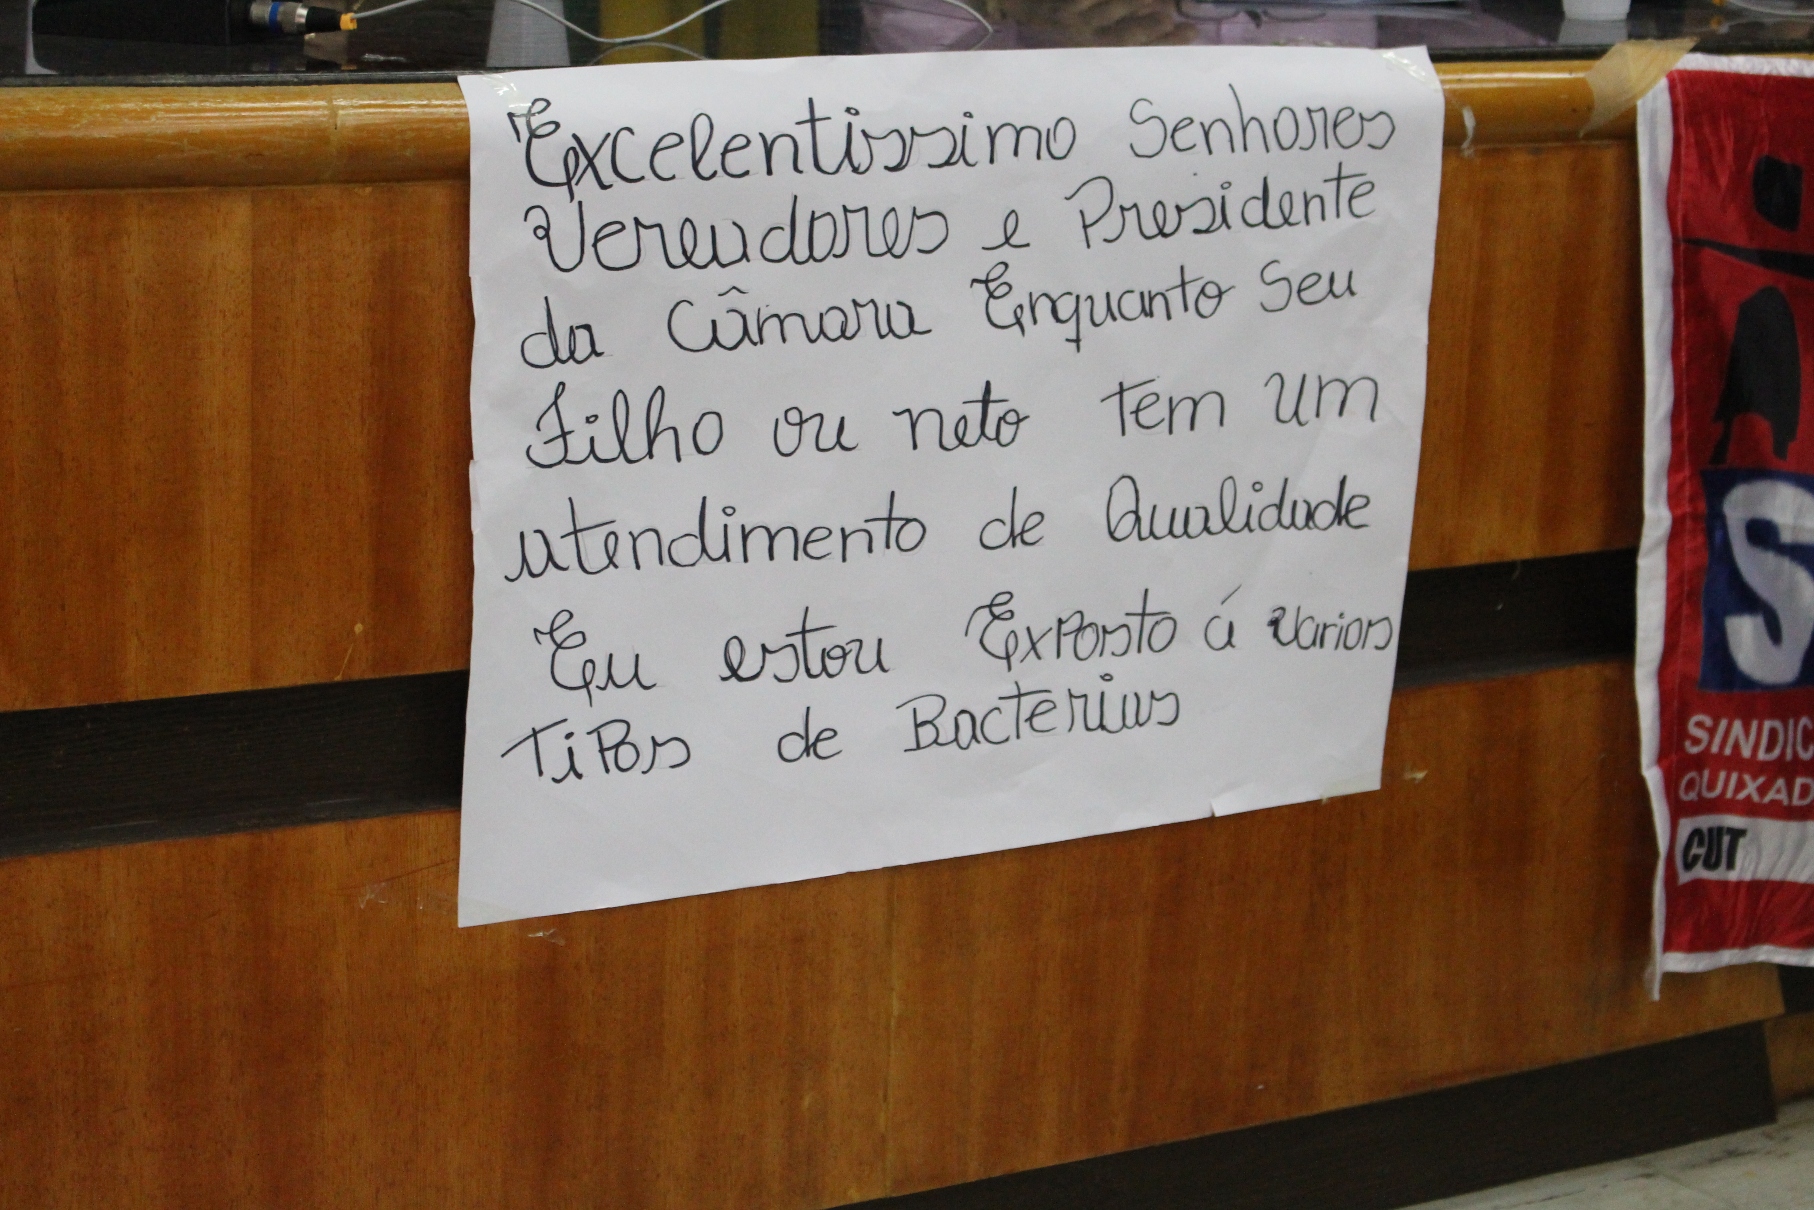 Excelentissimo Senhores
Vereadores e Presidente
da Câmara Enquanto Seu
Filho ou neto tem um
atendimento de Qualidade
Eu estou Exposto á varios
Tipos de Bacterias
S
SINDIC
QUIXAD
CUT